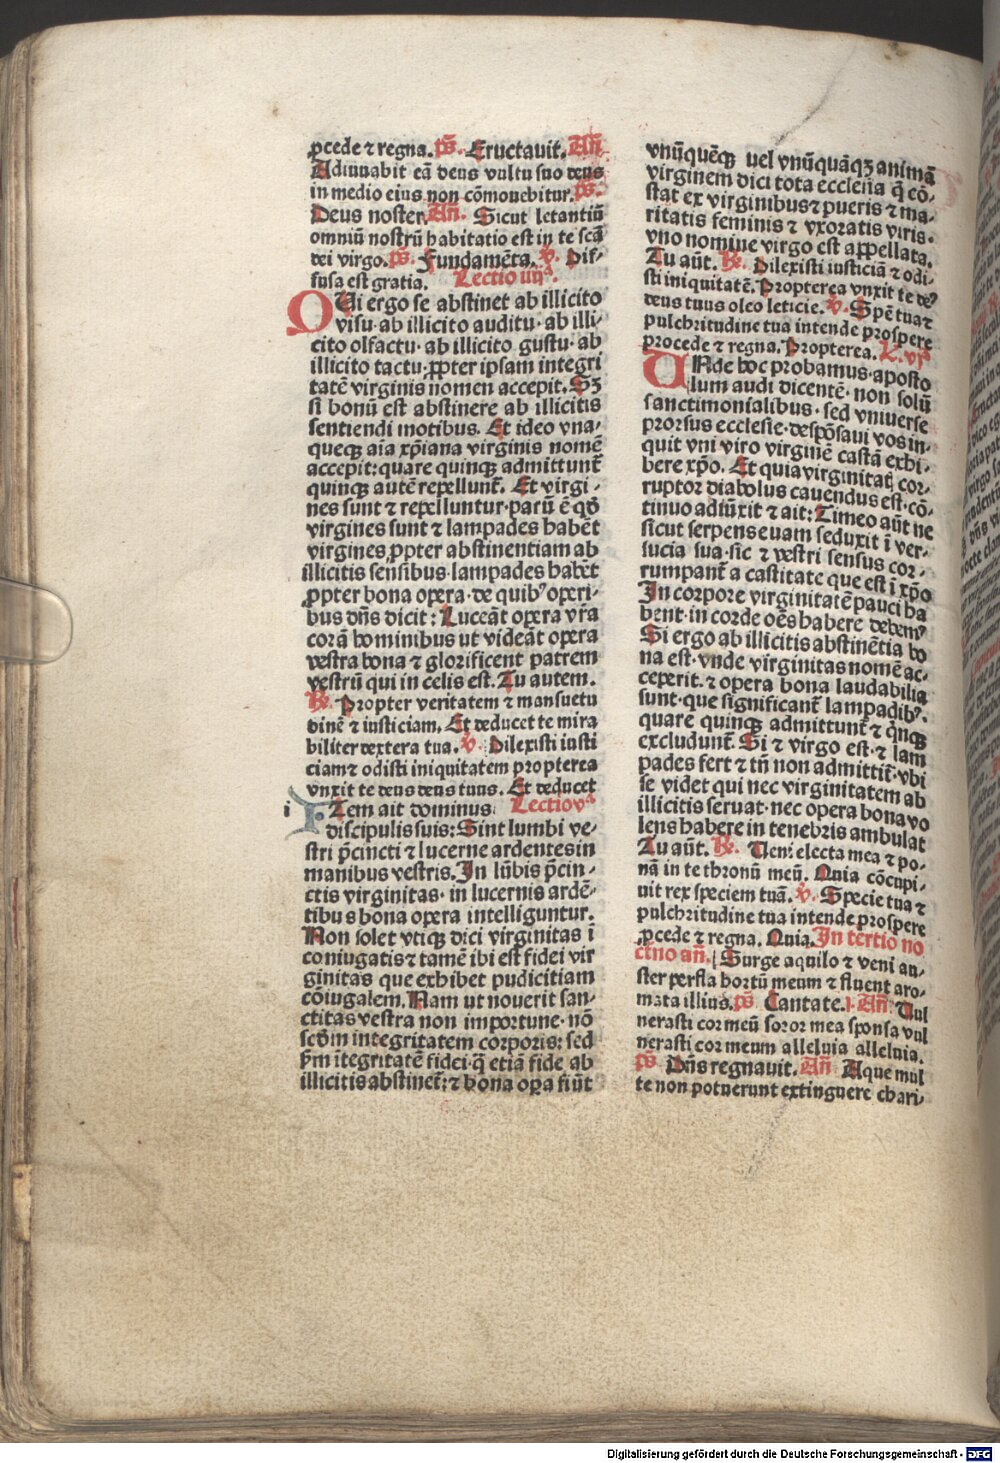 ꝓcede ⁊ regna. p̄s. Eructauit. An̄.
Adiuuabit eā deus vultu suo deus
in medio eius non cōmouebitur. p̄s.
Deus noster. An̄. Sicut letantiū
omniū nostrū habitatio est in te scā
dei virgo. p̄s. Fundamēta. v̄. Dif-
fusa est gratia. Lectio iiijᵃ.
QUi ergo se abstinet ab illicito
visu· ab illicito auditu· ab illi-
cito olfactu· ab illicito gustu· ab
illicito tactu, ꝓpter ipsam integri
tatē virginis nomen accepit. Sꝫ
si bonū est abstinere ab illicitis
sentiendi motibus. Et ideo vna-
queqꝫ aīa xp̄iana virginis nomē
accepit: quare quinqꝫ admittunt̄
quinqꝫ autē repellunt̄. Et virgi-
nes sunt ⁊ repelluntur· parū ē qō
virgines sunt ⁊ lampades habēt
virgines, ꝓpter abstinentiam ab
illicitis sensibus· lampades habēt
ꝓpter bona opera· de quibꝰ operi-
bus dn̄s dicit: Luceāt opera vr̄a
corā hominibus ut videāt opera
vestra bona ⁊ glorificent patrem
vestrū qui in celis est. Tu autem.
R̄. Propter veritatem ⁊ mansuetu
dinē ⁊ iusticiam. Et deducet te mira
biliter dextera tua. v̄. Dilexisti iusti
ciam ⁊ odisti iniquitatem propterea
vnxit te deus deus tuus. Et deducet
i ITem ait dominus Lectio vᵃ
discipulis suis: Sint lumbi ve-
stri p̄cincti ⁊ lucerne ardentes in
manibus vestris. In lūbis p̄cin-
ctis virginitas· in lucernis ardē-
tibus bona opera intelliguntur.
Non solet vtiqꝫ dici virginitas ī
coniugatis ⁊ tamē ibi est fidei vir
ginitas que exhibet pudicitiam
cōiugalem. Nam ut nouerit san-
ctitas vestra non importune· nō
scd̄m integritatem corporis: sed
scd̄m ītegritatē fidei· q̄ etiā fide ab
illicitis abstinet̄: ⁊ bona oꝑa fiūt
vnūquēqꝫ uel vnūquāqꝫ animā
virginem dici tota ecclesia q̄ cō-
stat ex virginibus ⁊ pueris ⁊ ma-
ritatis feminis ⁊ vxoratis viris·
vno nomine virgo est appellata.
Tu aūt. R̄. Dilexisti iusticiā ⁊ odi-
sti iniquitatē. Propterea vnxit te deꝰ
deus tuus oleo leticie. v̄. Spē tua ⁊
pulchritudine tua intende prospere
procede ⁊ regna. Propterea. L. vjᵃ
UNde hoc probamus· aposto
lum audi dicentē· non solū
sanctimonialibus· sed vniuerse
prorsus ecclesie· despōsaui vos in-
quit vni viro virginē castā exhi-
bere xp̄o. Et quia virginitatꝭ cor-
ruptor diabolus cauendus est· cō-
tinuo adiūxit ⁊ ait: Timeo aūt ne
sicut serpens euam seduxit ī ver-
sucia sua· sic ⁊ vestri sensus cor-
rumpant̄ a castitate que est ī xp̄o
In corpore virginitatē pauci ha
bent· in corde oēs habere debemꝰ
Si ergo ab illicitis abstinētia bo
na est· vnde virginitas nomē ac-
ceperit· ⁊ opera bona laudabilia
sunt· que significant̄ lampadibꝰ.
quare quinqꝫ admittunt̄ ⁊ qnqꝫ
excludunt̄. Si ⁊ virgo est· ⁊ lam
pades fert ⁊ tn̄ non admittit̄· vbi
se videt qui nec virginitatem ab
illicitis seruat· nec opera bona vo
lens habere in tenebris ambulat
Tu aūt. R̄. Veni electa mea ⁊ po-
nā in te thronū meū. Quia cōcupi-
uit rex speciem tuā. v̄. Specie tua ⁊
pulchritudine tua intende prospere
ꝓcede ⁊ regna. Quia. In tertio no
ctno an̄. Surge aquilo ⁊ veni au-
ster perfla hortū meum ⁊ fluent aro-
mata illius. p̄s Cantate. An̄. Vul
nerasti cor meū soror mea sponsa vul
nerasti cor meum alleluia alleluia.
p̄s Dn̄s regnauit. An̄ Aque mul
te non potuerunt extinguere chari-
Digitalisierung gefördert durch die Deutsche Forschungsgemeinschaft - DFG